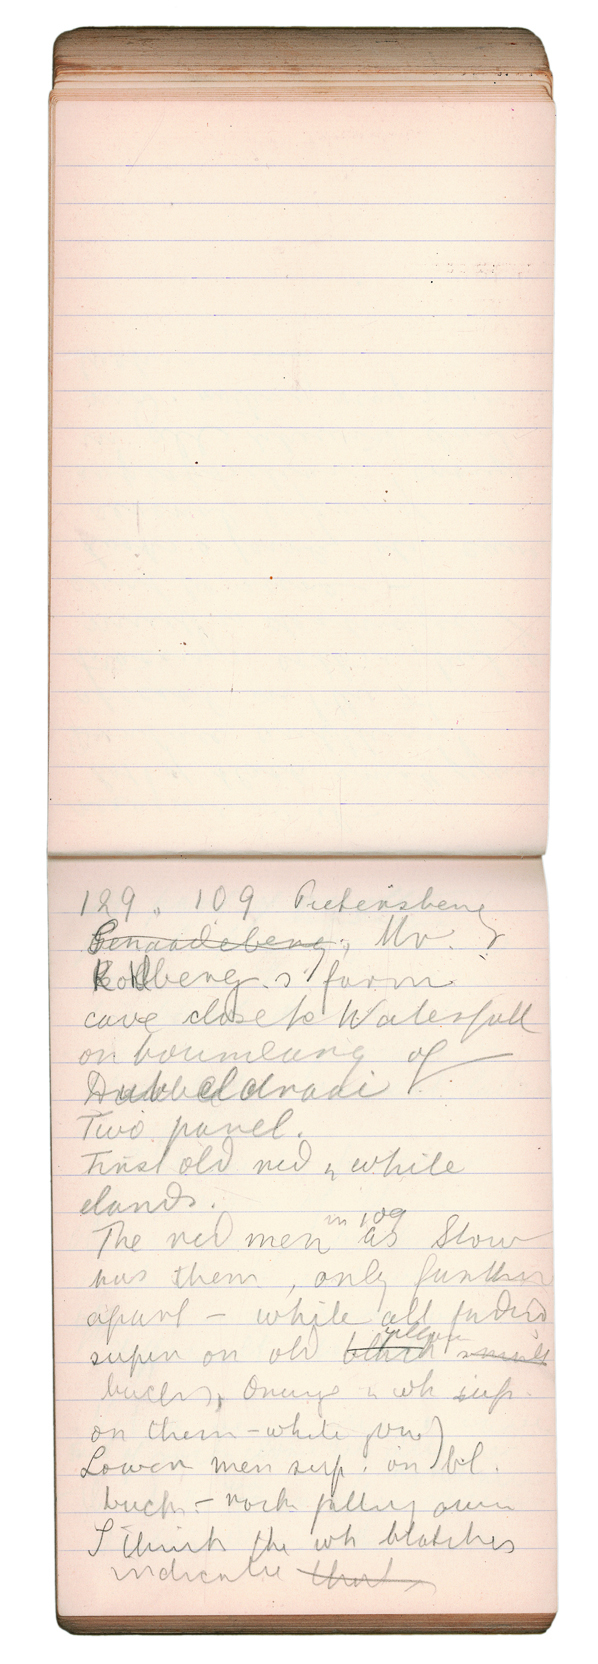 129. 109 Pietersberg
Genaadeberg, Mr.
Kolberg's farm
cave close to Waterfall
on boundary of
Dubbeldraai
Two panel.
First old red & white
elands.
in 109
The red men as Stow
has them, only further
apart – white all faded
yellow
super on old black small
bucks, Orange & wh sup.
on them – white gone)
Lower men sup. on bl.
buck – rock falling away
I think the wh blotches
indicate that